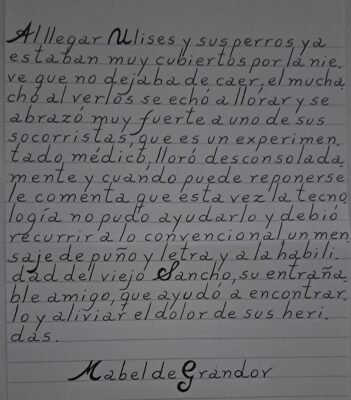 Al llegar Ulises y sus perros ya
estaban muy cubiertos por la nie.
ve que no dejaba de caer, el mucha.
cho al verlos se echó a llorar y se
abrazó muy fuerte a uno de sus
socorristas, que es un experimen.
tado médico, lloró desconsolada.
mente y cuando puede reponerse
le comenta que esta vez la tecno.
logía no pudo ayudarlo y debió
recurrir a lo convencional, un men.
saje de puño y letra y a la habili.
dad del viejo Sancho, su entraña.
ble amigo, que ayudó a encontrar.
lo y aliviar el dolor de sus heri.
das.
Mabel de Grándor